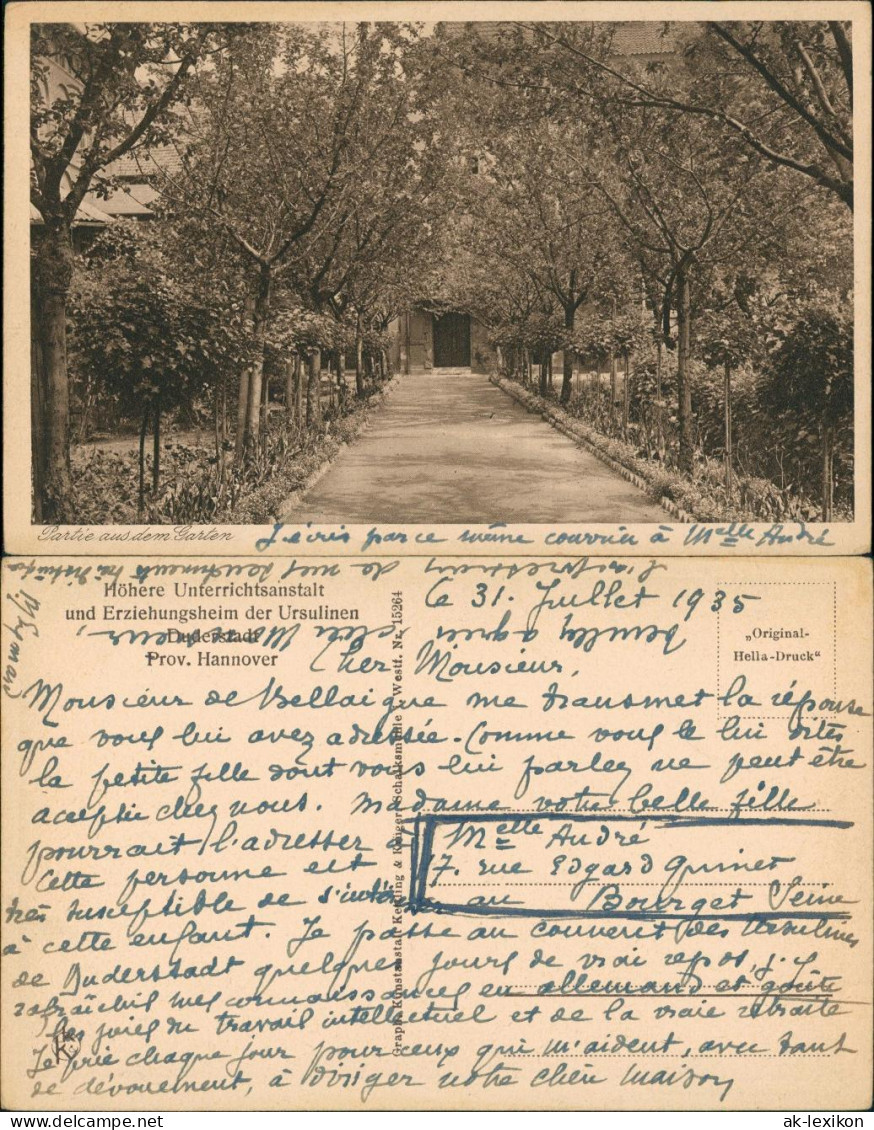 Partie aus dem Garten
J'écris par ce même courrier à Melle André
Höhere Unterrichtsanstalt
und Erziehungsheim der Ursulinen
Duderstadt
Prov. Hannover
„Original-
Hella-Druck“
Graph. Kunstanstalt Kettling & Krüger, Schalksmühle i. Westf. Nr. 15264
Ce 31. Juillet 1935
Cher Monsieur,
Monsieur de Bellaigue me transmet la réponse
que vous lui avez adressée. Comme vous le lui dites
la petite fille dont vous lui parlez ne peut être
acceptée chez nous. Madame votre belle fille
pourrait l'adresser à Melle André
17. rue Edgard Quinet
au Bourget Seine
Cette personne est
très susceptible de s'intéresser
à cette enfant. Je passe au couvent des Ursulines
de Duderstadt quelques jours de vrai repos, j'y
rafraîchis mes connaissances en allemand et goûte
les joies du travail intellectuel et de la vraie retraite
Je prie chaque jour pour ceux qui m'aident, avec tant
de dévouement, à diriger notre chère maison
Veuillez agréer, cher Monsieur,
l'expression de mes sentiments très distingués
ak-lexikon.com